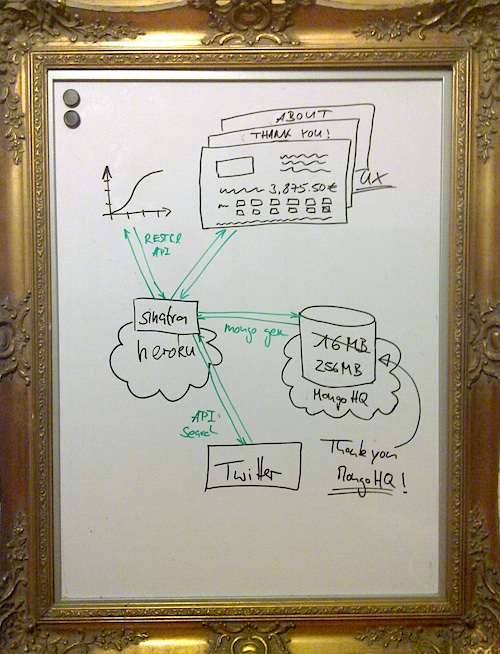 ABOUT
THANK YOU!
3,875.50€
UX
API
sinatra
heroku
mongo gem
16 MB
256MB
MongoHQ
API
Search
Twitter
Thank you
MongoHQ!